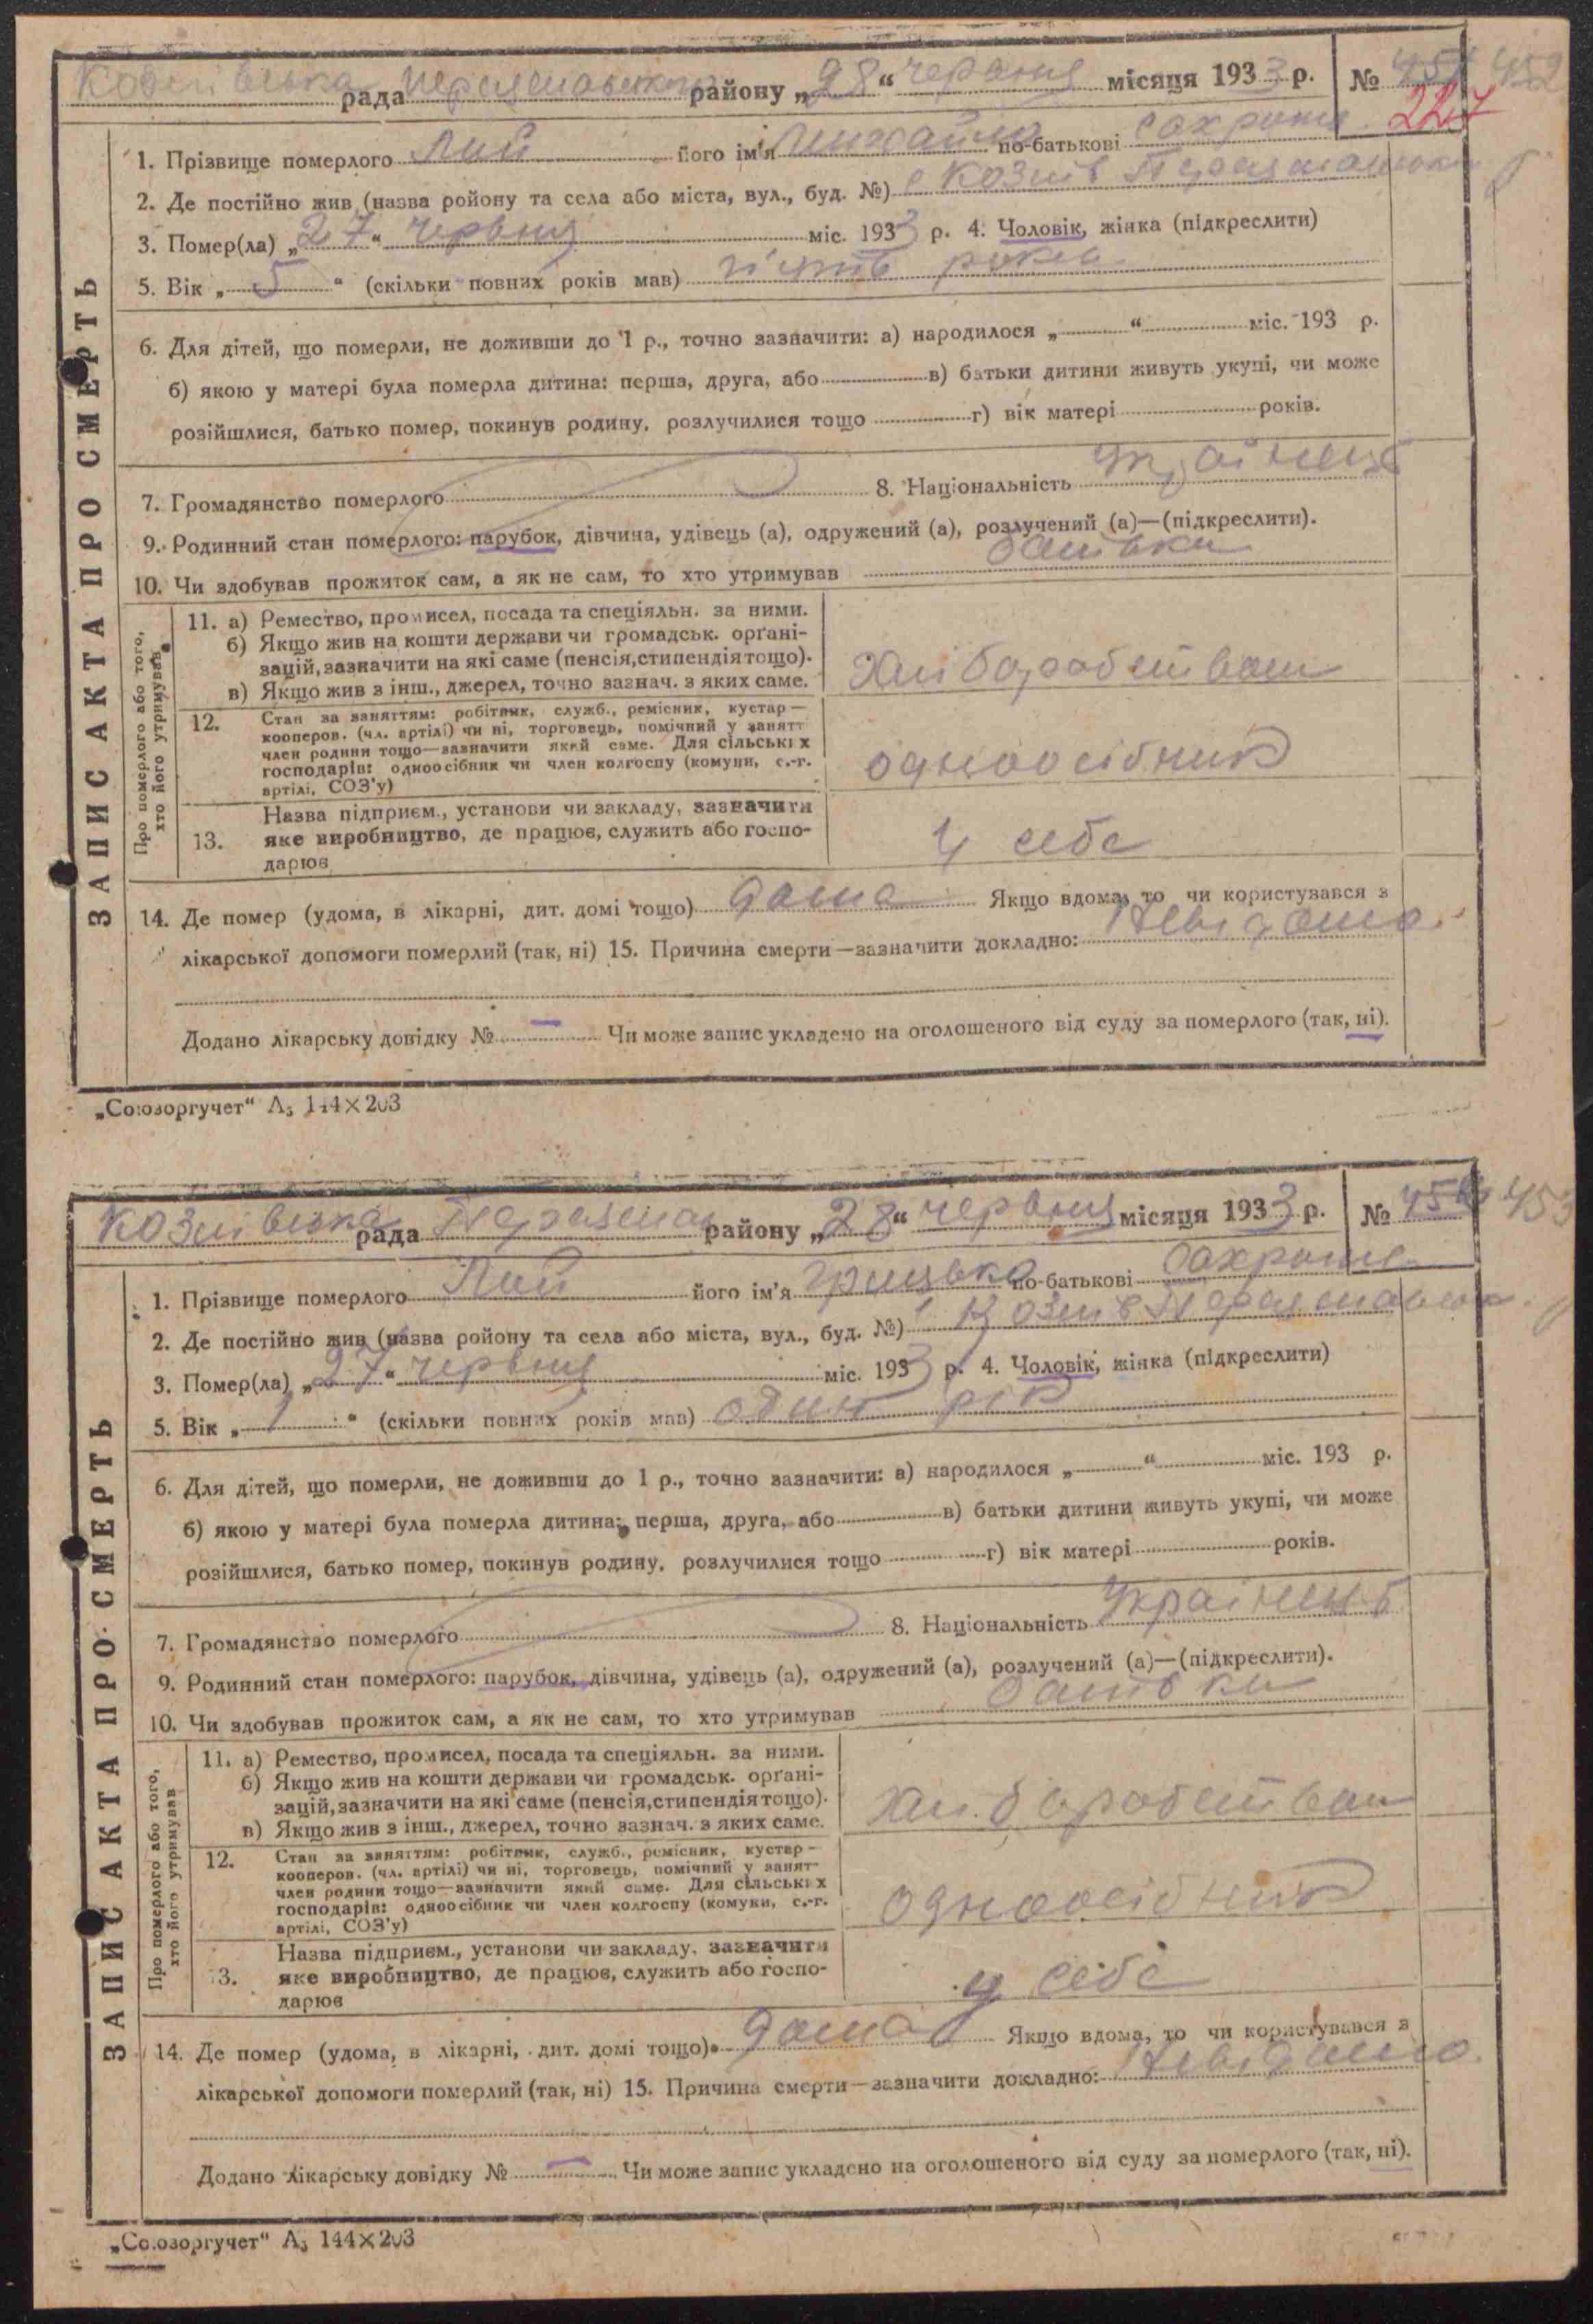 рада Переяславського району „28“ червня місяця 1933 р. № 452
227
1. Прізвище померлого Лий його ім'я Михайло по-батькові
2. Де постійно жив (назва ройону та села або міста, вул., буд. №) с Козлів
3. Помер(ла) „27“ червня міс. 1933 р. 4. Чоловік, жінка (підкреслити)
5. Вік „5“ (скільки повних років мав)
6. Для дітей, що померли, не доживши до 1 р., точно зазначити: а) народилося „ “ міс. 193 р.
б) якою у матері була померла дитина: перша, друга, або в) батьки дитини живуть укупі, чи може
розійшлися, батько помер, покинув родину, розлучилися тощо г) вік матері років.
7. Громадянство померлого 8. Національність Українець
9. Родинний стан померлого: парубок, дівчина, удівець (а), одружений (а), розлучений (а)—(підкреслити).
10. Чи здобував прожиток сам, а як не сам, то хто утримував батьки
ЗАПИС АКТА ПРО СМЕРТЬ
Про померлого або того,
хто його утримував
11. а) Ремество, промисел, посада та спеціяльн. за ними.
б) Якщо жив на кошти держави чи громадськ. орґані-
зацій, зазначити на які саме (пенсія, стипендія тощо).
в) Якщо жив з інш., джерел, точно зазнач. з яких саме.
12. Стан за заняттям: робітник, служб., ремісник, кустар—
кооперов. (чл. артілі) чи ні, торговець, помічний у занятт
член родини тощо—зазначити який саме. Для сільських
господарів: одноосібник чи член колгоспу (комуни, с.-г.
артілі, СОЗ'у)
одноосібник
13. Назва підприєм., установи чи закладу, зазначити
яке виробництво, де працює, служить або госпо-
дарює
у себе
14. Де помер (удома, в лікарні, дит. домі тощо) дома Якщо вдома, то чи користувався з
лікарської допомоги померлий (так, ні) 15. Причина смерти—зазначити докладно: Невідомо.
Додано лікарську довідку № — Чи може запис укладено на оголошеного від суду за померлого (так, ні).
„Союзоргучет“ А₅ 144×203
Козлівська рада району „28“ червня місяця 1933 р. № 453
1. Прізвище померлого Лий його ім'я Грицько по-батькові
2. Де постійно жив (назва ройону та села або міста, вул., буд. №) Козлів
3. Помер(ла) „27“ червня міс. 1933 р. 4. Чоловік, жінка (підкреслити)
5. Вік „1“ (скільки повних років мав) один рік
6. Для дітей, що померли, не доживши до 1 р., точно зазначити: а) народилося „ “ міс. 193 р.
б) якою у матері була померла дитина: перша, друга, або в) батьки дитини живуть укупі, чи може
розійшлися, батько помер, покинув родину, розлучилися тощо г) вік матері років.
7. Громадянство померлого 8. Національність Українець
9. Родинний стан померлого: парубок, дівчина, удівець (а), одружений (а), розлучений (а)—(підкреслити).
10. Чи здобував прожиток сам, а як не сам, то хто утримував батьки
ЗАПИС АКТА ПРО СМЕРТЬ
Про померлого або того,
хто його утримував
11. а) Ремество, промисел, посада та спеціяльн. за ними.
б) Якщо жив на кошти держави чи громадськ. орґані-
зацій, зазначити на які саме (пенсія, стипендія тощо).
в) Якщо жив з інш., джерел, точно зазнач. з яких саме.
12. Стан за заняттям: робітник, служб., ремісник, кустар—
кооперов. (чл. артілі) чи ні, торговець, помічний у занят-
член родини тощо—зазначити який саме. Для сільських
господарів: одноосібник чи член колгоспу (комуни, с.-г.
артілі, СОЗ'у)
одноосібник
3. Назва підприєм., установи чи закладу, зазначити
яке виробництво, де працює, служить або госпо-
дарює
у себе
14. Де помер (удома, в лікарні, дит. домі тощо) дома Якщо вдома, то чи користувався з
лікарської допомоги померлий (так, ні) 15. Причина смерти—зазначити докладно: Невідомо.
Додано лікарську довідку № — Чи може запис укладено на оголошеного від суду за померлого (так, ні).
„Союзоргучет“ А₅ 144×203